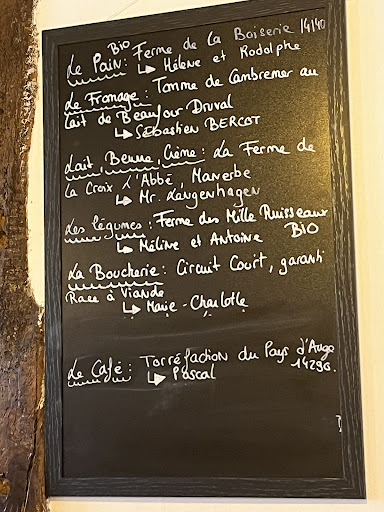 Le Pain BIO : Ferme de la Boiserie 14140
↳ Hélène et Rodolphe
Le Fromage : Tomme de Cambremer au
Lait de Beaufour Druval
↳ Sébastien BERCOT
Lait, Beurre, Crème : La Ferme de
la Croix L'Abbé Manerbe
↳ Mr. Langenhagen
Les légumes : Ferme des Mille Ruisseaux
↳ Méline et Antoine BIO
La Boucherie : Circuit Court, garanti
Race à Viande
↳ Marie-Charlotte
Le Café : Torréfaction du Pays d'Auge
↳ Pascal 14290.